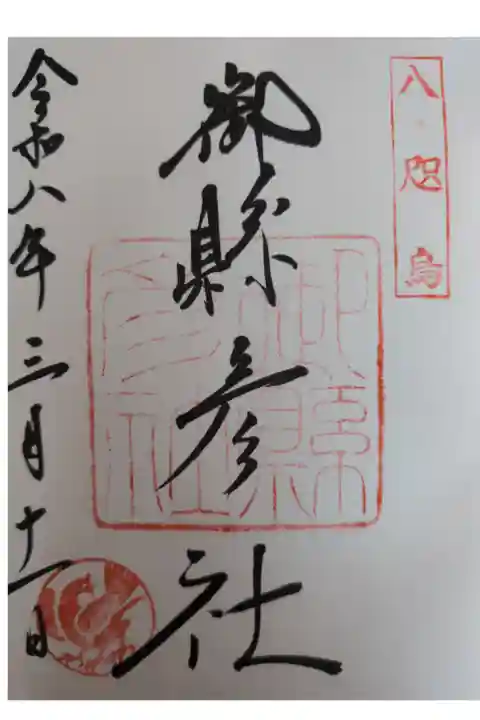 八咫烏
御縣彦社
御縣彦社
令和八年三月十一日